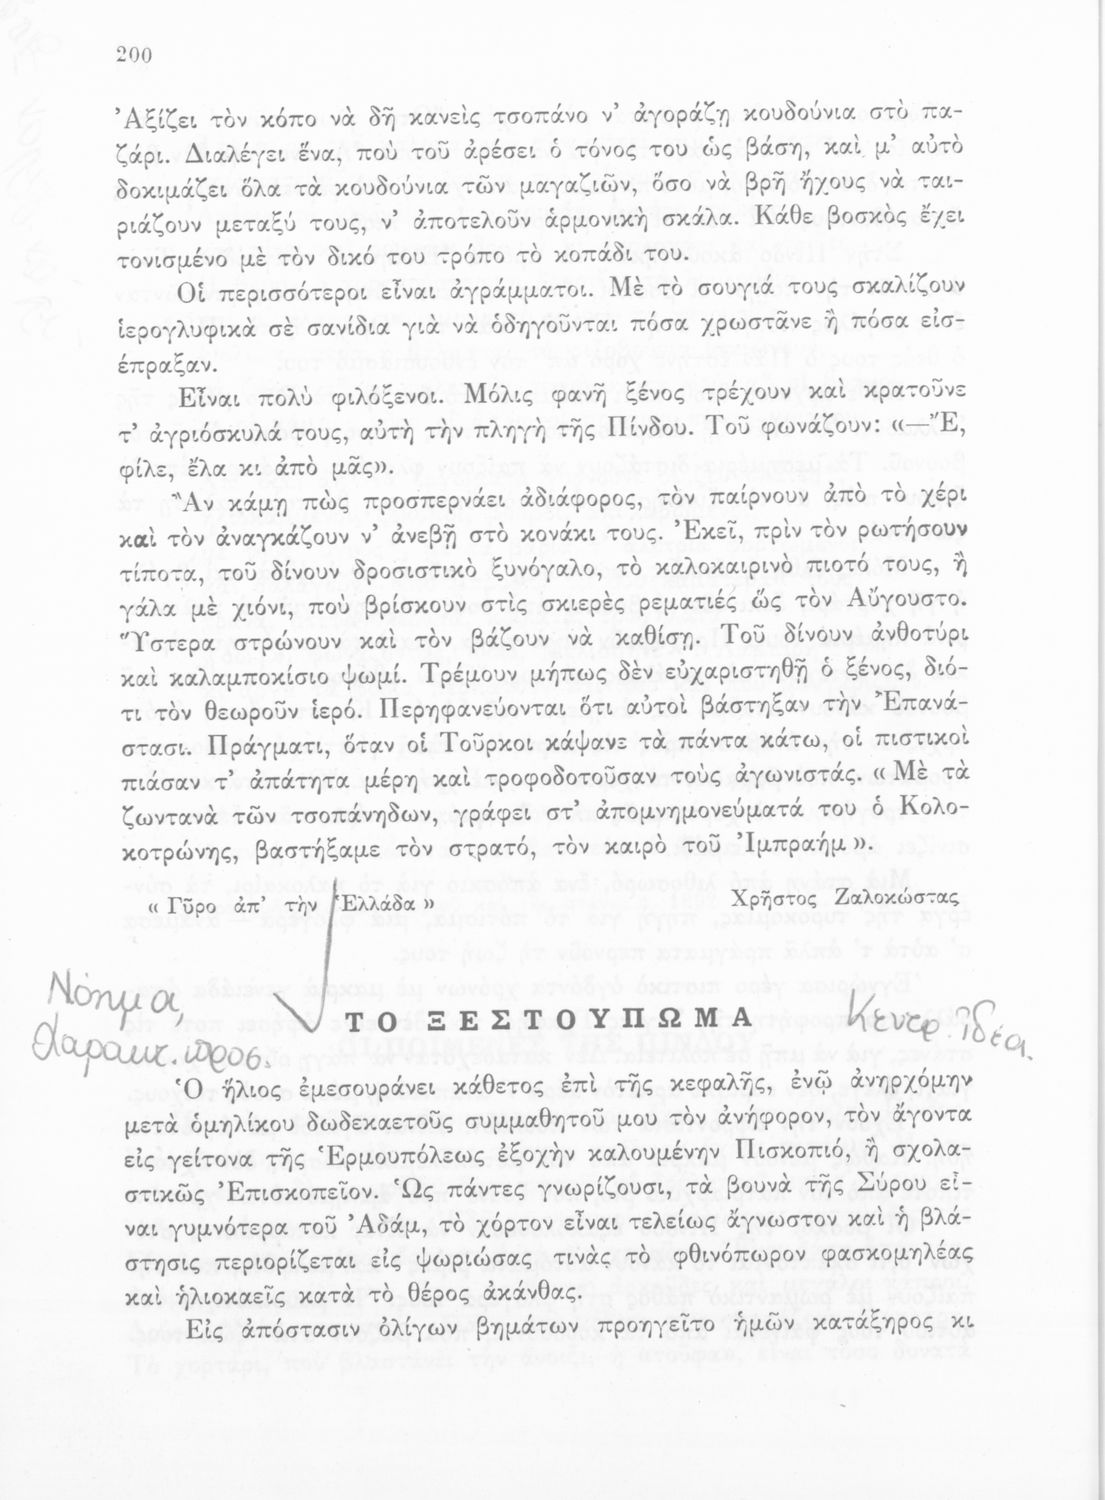 200
Ἀξίζει τὸν κόπο νὰ δῆ κανεὶς τσοπάνο ν’ ἀγοράζῃ κουδούνια στὸ πα-
ζάρι. Διαλέγει ἕνα, ποὺ τοῦ ἀρέσει ὁ τόνος του ὡς βάση, καὶ μ’ αὐτὸ
δοκιμάζει ὅλα τὰ κουδούνια τῶν μαγαζιῶν, ὅσο νὰ βρῆ ἤχους νὰ ται-
ριάζουν μεταξύ τους, ν’ ἀποτελοῦν ἁρμονικὴ σκάλα. Κάθε βοσκὸς ἔχει
τονισμένο μὲ τὸν δικό του τρόπο τὸ κοπάδι του.
Οἱ περισσότεροι εἶναι ἀγράμματοι. Μὲ τὸ σουγιά τους σκαλίζουν
ἱερογλυφικὰ σὲ σανίδια γιὰ νὰ ὁδηγοῦνται πόσα χρωστᾶνε ἢ πόσα εἰσ-
έπραξαν.
Εἶναι πολὺ φιλόξενοι. Μόλις φανῆ ξένος τρέχουν καὶ κρατοῦνε
τ’ ἀγριόσκυλά τους, αὐτὴ τὴν πληγὴ τῆς Πίνδου. Τοῦ φωνάζουν: «—Ἔ,
φίλε, ἔλα κι ἀπὸ μᾶς».
Ἂν κάμῃ πὼς προσπερνάει ἀδιάφορος, τὸν παίρνουν ἀπὸ τὸ χέρι
καὶ τὸν ἀναγκάζουν ν’ ἀνεβῇ στὸ κονάκι τους. Ἐκεῖ, πρὶν τὸν ρωτήσουν
τίποτα, τοῦ δίνουν δροσιστικὸ ξυνόγαλο, τὸ καλοκαιρινὸ πιοτό τους, ἢ
γάλα μὲ χιόνι, ποὺ βρίσκουν στὶς σκιερὲς ρεματιές ὥς τὸν Αὔγουστο.
Ὕστερα στρώνουν καὶ τὸν βάζουν νὰ καθίσῃ. Τοῦ δίνουν ἀνθοτύρι
καὶ καλαμποκίσιο ψωμί. Τρέμουν μήπως δὲν εὐχαριστηθῇ ὁ ξένος, διό-
τι τὸν θεωροῦν ἱερό. Περηφανεύονται ὅτι αὐτοὶ βάστηξαν τὴν Ἐπανά-
στασι. Πράγματι, ὅταν οἱ Τοῦρκοι κάψανε τὰ πάντα κάτω, οἱ πιστικοὶ
πιάσαν τ’ ἀπάτητα μέρη καὶ τροφοδοτοῦσαν τοὺς ἀγωνιστάς. «Μὲ τὰ
ζωντανὰ τῶν τσοπάνηδων, γράφει στ’ ἀπομνημονεύματά του ὁ Κολο-
κοτρώνης, βαστήξαμε τὸν στρατό, τὸν καιρὸ τοῦ Ἰμπραήμ».
«Γῦρο ἀπ’ τὴν Ἑλλάδα» Χρῆστος Ζαλοκώστας
Νόημα,
Χαρακτ. προσ.
ΤΟ ΞΕΣΤΟΥΠΩΜΑ
Κεντρ. ιδέα.
Ὁ ἥλιος ἐμεσουράνει κάθετος ἐπὶ τῆς κεφαλῆς, ἐνῷ ἀνηρχόμην
μετὰ ὁμηλίκου δωδεκαετοῦς συμμαθητοῦ μου τὸν ἀνήφορον, τὸν ἄγοντα
εἰς γείτονα τῆς Ἑρμουπόλεως ἐξοχὴν καλουμένην Πισκοπιό, ἢ σχολα-
στικῶς Ἐπισκοπεῖον. Ὡς πάντες γνωρίζουσι, τὰ βουνὰ τῆς Σύρου εἶ-
ναι γυμνότερα τοῦ Ἀδάμ, τὸ χόρτον εἶναι τελείως ἄγνωστον καὶ ἡ βλά-
στησις περιορίζεται εἰς ψωριώσας τινὰς τὸ φθινόπωρον φασκομηλέας
καὶ ἡλιοκαεῖς κατὰ τὸ θέρος ἀκάνθας.
Εἰς ἀπόστασιν ὀλίγων βημάτων προηγεῖτο ἡμῶν κατάξηρος κι